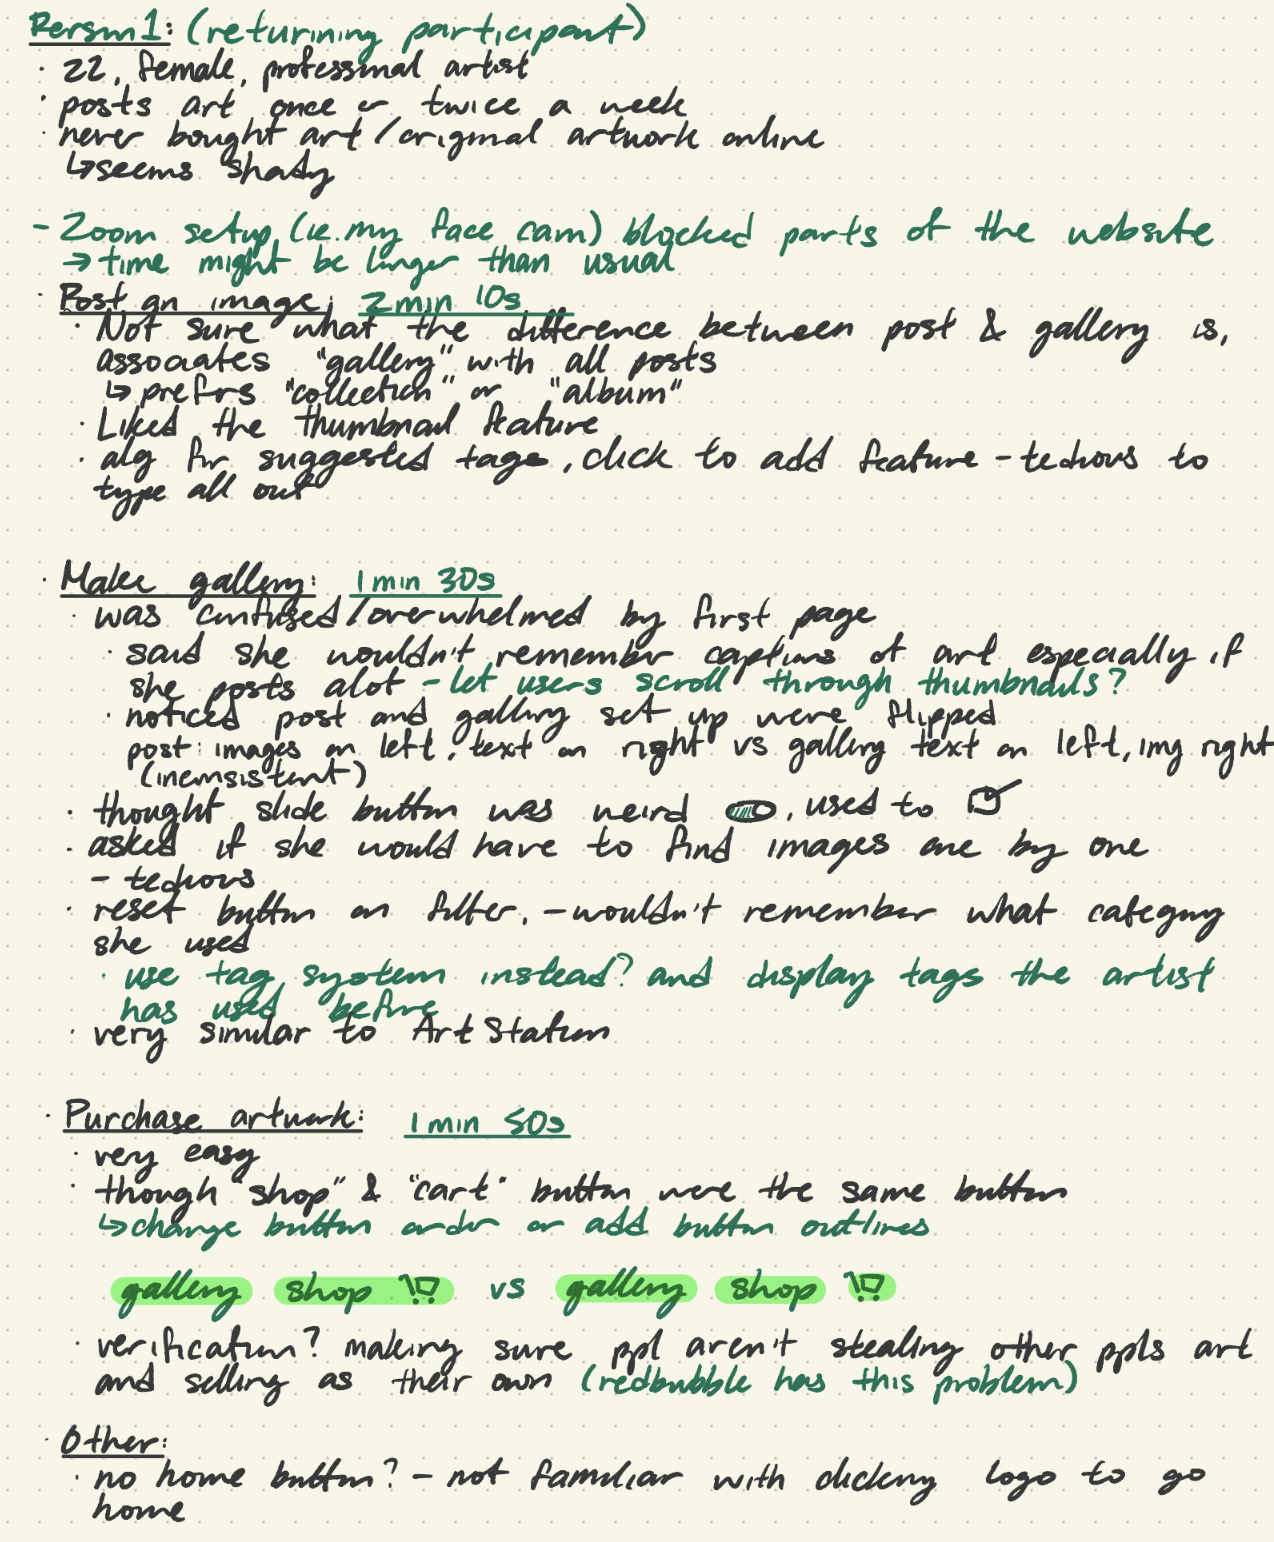 Person 1: (returining participant)
· 22, female, professional artist
· posts art once or twice a week
· never bought art / original artwork online
↳ seems shady
- Zoom setup (ie. my face cam) blocked parts of the website
→ time might be longer than usual
· Post an image: 2 min 10s
· Not sure what the difference between post & gallery is,
associates "gallery" with all posts
↳ prefrs "collection" or "album"
· Liked the thumbnail feature
· alg for suggested tags, click to add feature - tedious to
type all out
· Make gallery: 1 min 30s
· was confused/overwhelmed by first page
· said she wouldn't remember captions of art especially if
she posts alot - let users scroll through thumbnails?
· noticed post and gallery set up were flipped
post: images on left, text on right vs gallery text on left, img right
(inconsistent)
· thought slide button was weird, used to
· asked if she would have to find images one by one
- tedious
· reset button on filter, - wouldn't remember what category
she used
· use tag system instead? and display tags the artist
has used before
· very similar to ArtStation
· Purchase artwork: 1 min 50s
· very easy
· though "shop" & "cart" button were the same button
↳ change button order or add button outlines
gallery shop vs gallery shop
· verification? making sure ppl aren't stealing other ppls art
and selling as their own (redbubble has this problem)
· Other:
· no home button? - not familiar with clicking logo to go
home